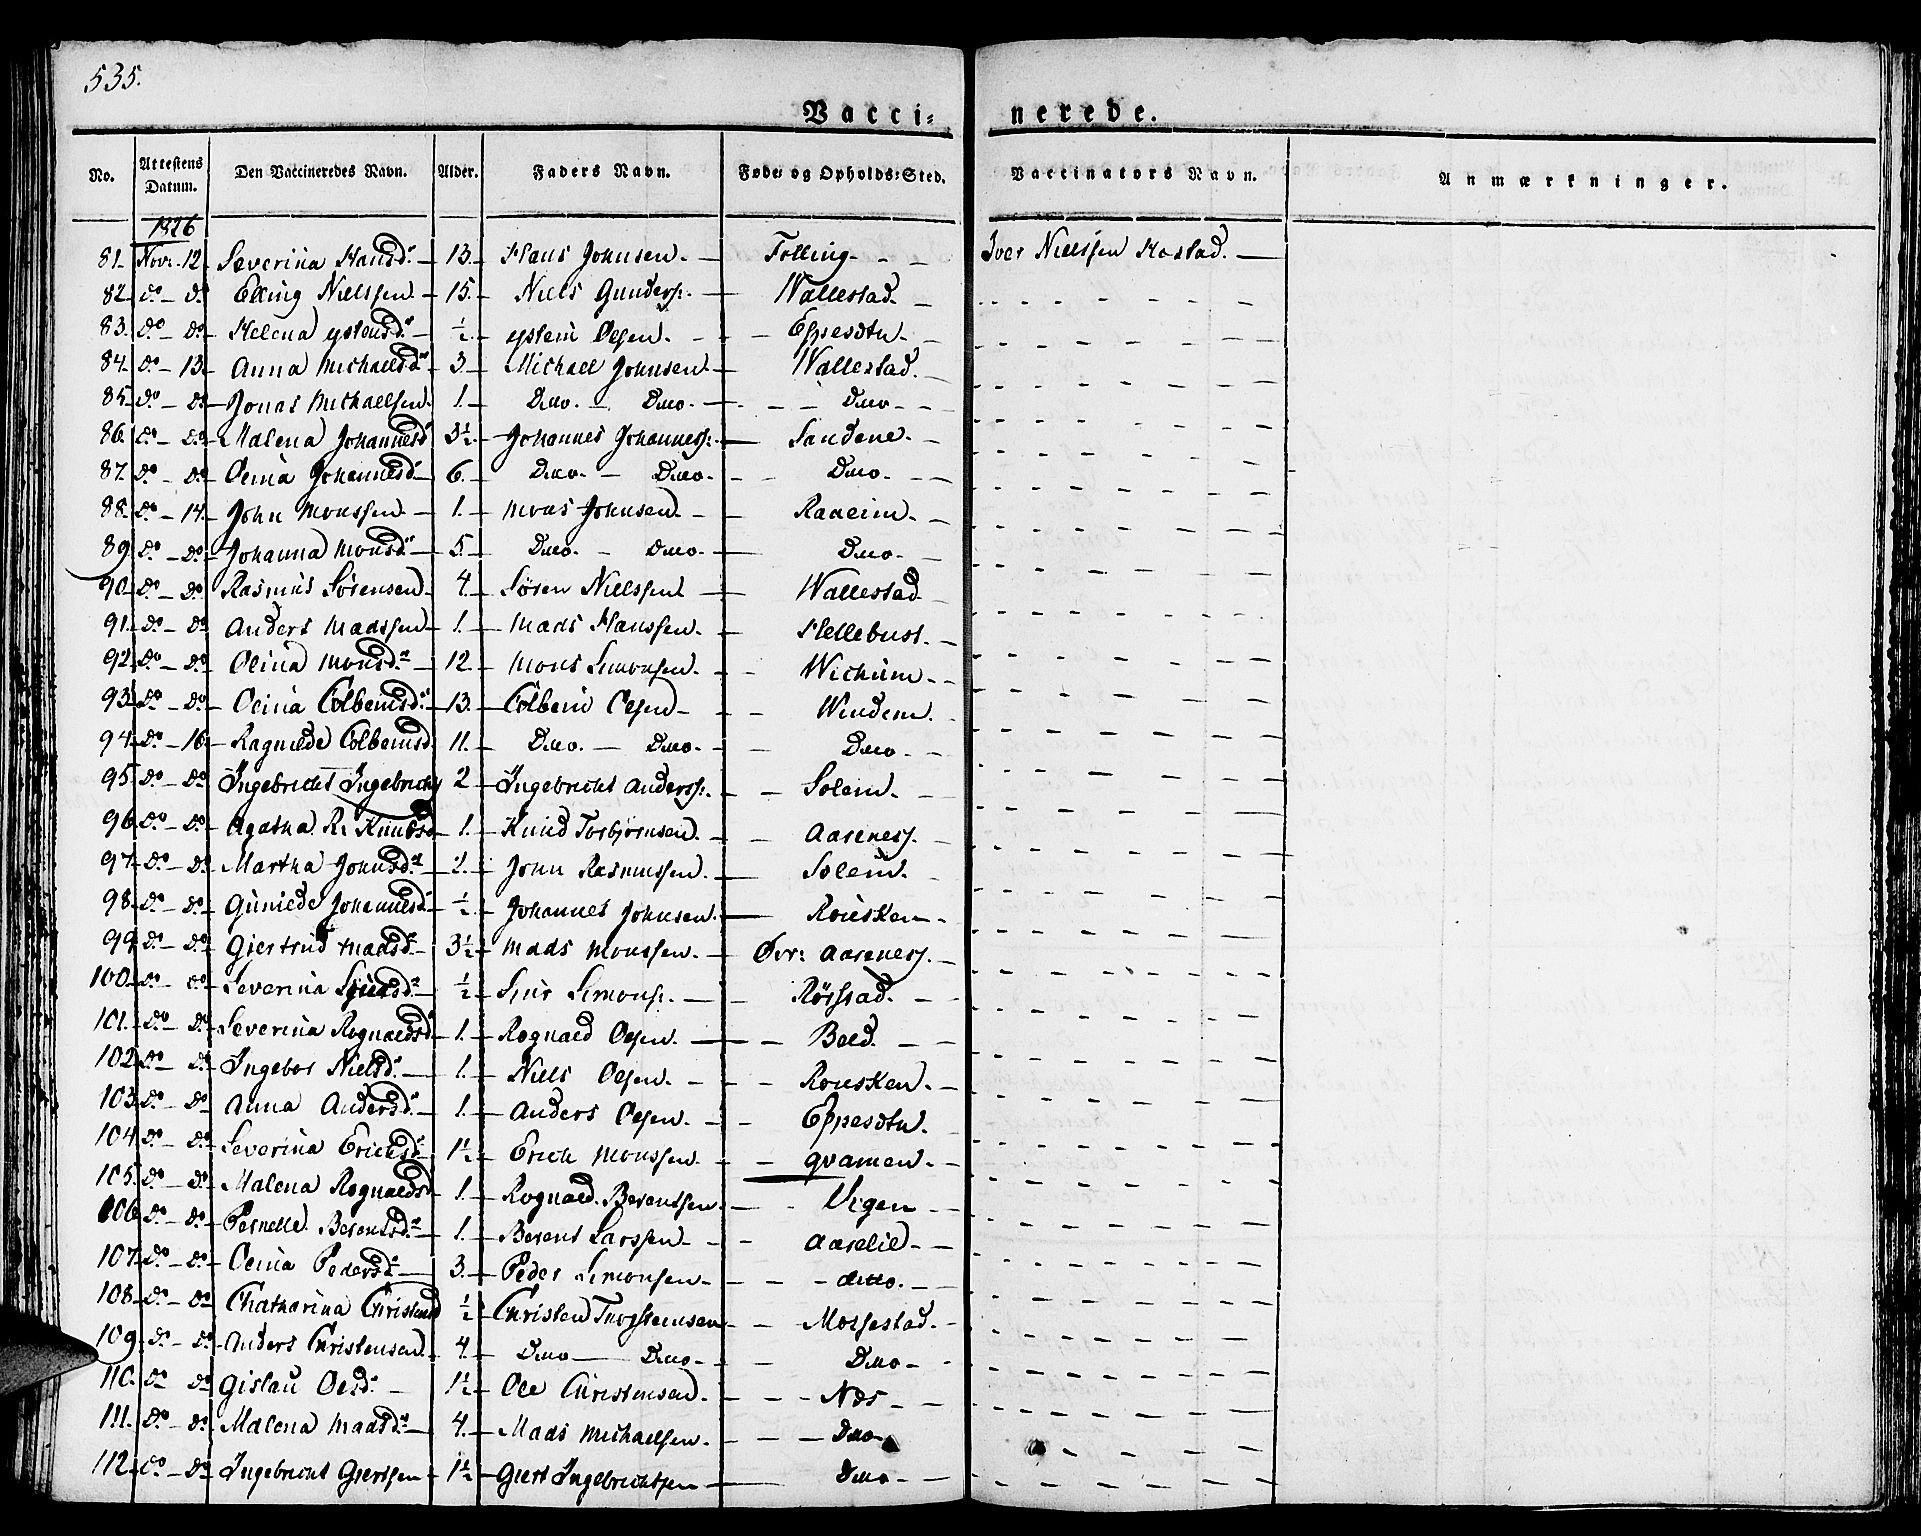 535.
Vacci= nerede.
No. Attestens Datum. Den Vaccineredes Navn. Alder. Faders Navn. Føde= og Opholds=Sted. Vaccinators Navn. Anmærkninger.
1826
81 Novr. 12 Severina Hansd. 13. Hans Johnsen. Tolling Iver Nielsen Kostad.
82 do do Elling Nielssen 15. Niels Gunders:
Wallestad
83. do do Helena ystensd. 1/2 ystein Olsen. 
84. do 13. Anna Michaelsd. 3. Michael Johnsen Wallestad.
85. do do Jonas Michaelsen. 1. Ditto. Ditto. Ditto
86. do do Malena Johannesd. 3 1/2 Johannes Johannes: Sandene.
87. do do Olina Johannesd. 6. Ditto. Ditto. Ditto.
88. do 14. John Monssen 1. Mons Johnsen. Raaeim.
89 do do Johanna Monsd. 5. Ditto. Ditto. Ditto.
90. do do Rasmus Sørensen 4. Søren Nielssen Wallestad
91. do do Anders Madssen 1. Mads Hanssen. Hellebust.
92. do do Olina Monsd. 12. Mons Simonsen.
93. do do Olina Colbeinsd. 13. Colbein Olsen
94. do 16. Ragnilde Colbeinsd. 11. Ditto. Ditto. Ditto
95. do do Ingebricht Ingebrichts 2 Ingebricht Anderss:. Solem.
96. do do Agatha R: Knudsd 1. Knud Torbjørnsen. Aarenes.
97. do do Martha Johnsd. 2. John Rasmussen. Solem.
98. do do Gunilde Johannesd. 1/2 Johannes Johnsen. Rousken
99. do do Giertrud Madsd. 3 1/2 Mads Monssen. Øvr: Aarenes.
100. do do Severina Siursd. 1/2 Siur Simons:
101. do do Severina Rognaldsd 1. Rognald Olsen. Bold.
102. do do Ingebor Nielsd. 1. Niels Olsen. Rousken.
103. do do Anna Andersd. 1. Anders Olsen.
104. do do Severina Ericksd. 1 1/2 Erick Monssen. Qvamen.
105. do do Malena Rognalds 1. Rognald Berentsen. Vigen
106 do do Pernelle Berentsd. 1. Berent Larssen. Aarelid
107. do do Olina Pedersd. 3. Peder Simonsen ditto.
108. do do Chatharina Christensd 1/2 Christen Torstensen
109 do do Anders Christensen. 4. Ditto Ditto Ditto
110. do do Gislau Olsd. 1 1/2 Ole Christensen. Nds
111. do do Malena Madsd. 4. Mads Michaelsen. Ditto
112. do do Ingebricht Giertsen 1 1/2 Giert Ingebrichtsen Ditto